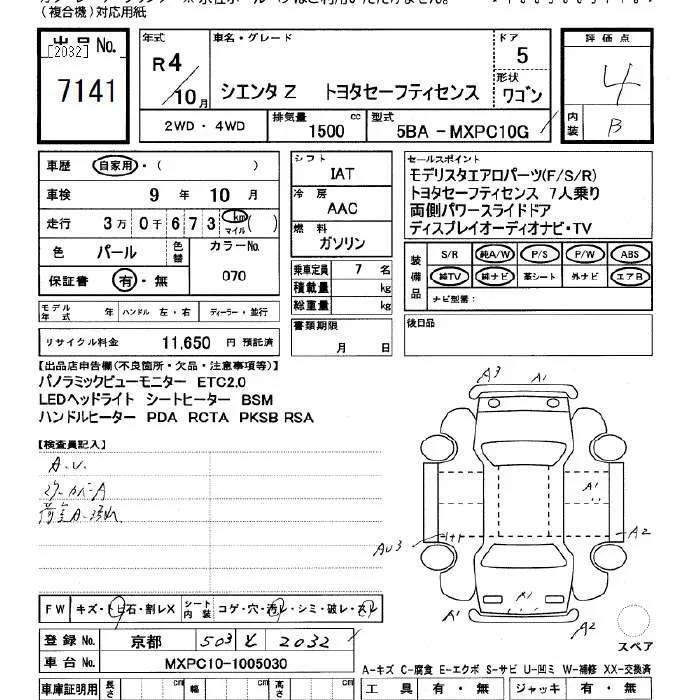 (複合機)対応用紙
出品No.
[2032]
7141
年式
R4/10月
車名・グレード
シエンタ Z トヨタセーフティセンス
ドア
5
形状
ワゴン
評価点
4
内装
B
2WD・4WD
排気量
1500 cc
型式
5BA - MXPC10G
車歴 自家用・( )
車検 9年 10月
走行 3万0千673 km マイル ( )
色 パール 色替 カラーNo. 070
保証書 有・無
モデル年式 年 ハンドル 左・右 ディーラー・並行
リサイクル料金 11,650 円 預託済
シフト
IAT
冷房
AAC
燃料
ガソリン
乗車定員 7 名
積載量 kg
総重量 kg
書類期限
月 日
セールスポイント
モデリスタエアロパーツ(F/S/R)
トヨタセーフティセンス 7人乗り
両側パワースライドドア
ディスプレイオーディオナビ・TV
装備品
S/R 純A/W P/S P/W ABS
純TV 純ナビ 革シート 外ナビ エアB
ナビ型番:
後日品
【出品店申告欄(不良箇所・欠品・注意事項等)】
パノラミックビューモニター ETC2.0
LEDヘッドライト シートヒーター BSM
ハンドルヒーター PDA RCTA PKSB RSA
【検査員記入】
A.U.
ミラーカバーA
荷室A・汚れ
A3 A1
A1
AU3
A2
A1 A1
スペア
FW キズ・トビ石・割レX シート内装 コゲ・穴・汚レ・シミ・破レ・スレ
登録No. 京都 503 と 2032
車台No. MXPC10-1005030
A-キズ C-腐食 E-エクボ S-サビ U-凹ミ W-補修 XX-交換済
車庫証明用 長さ cm 幅 cm 高さ cm
工具 有・無 ジャッキ 有・無